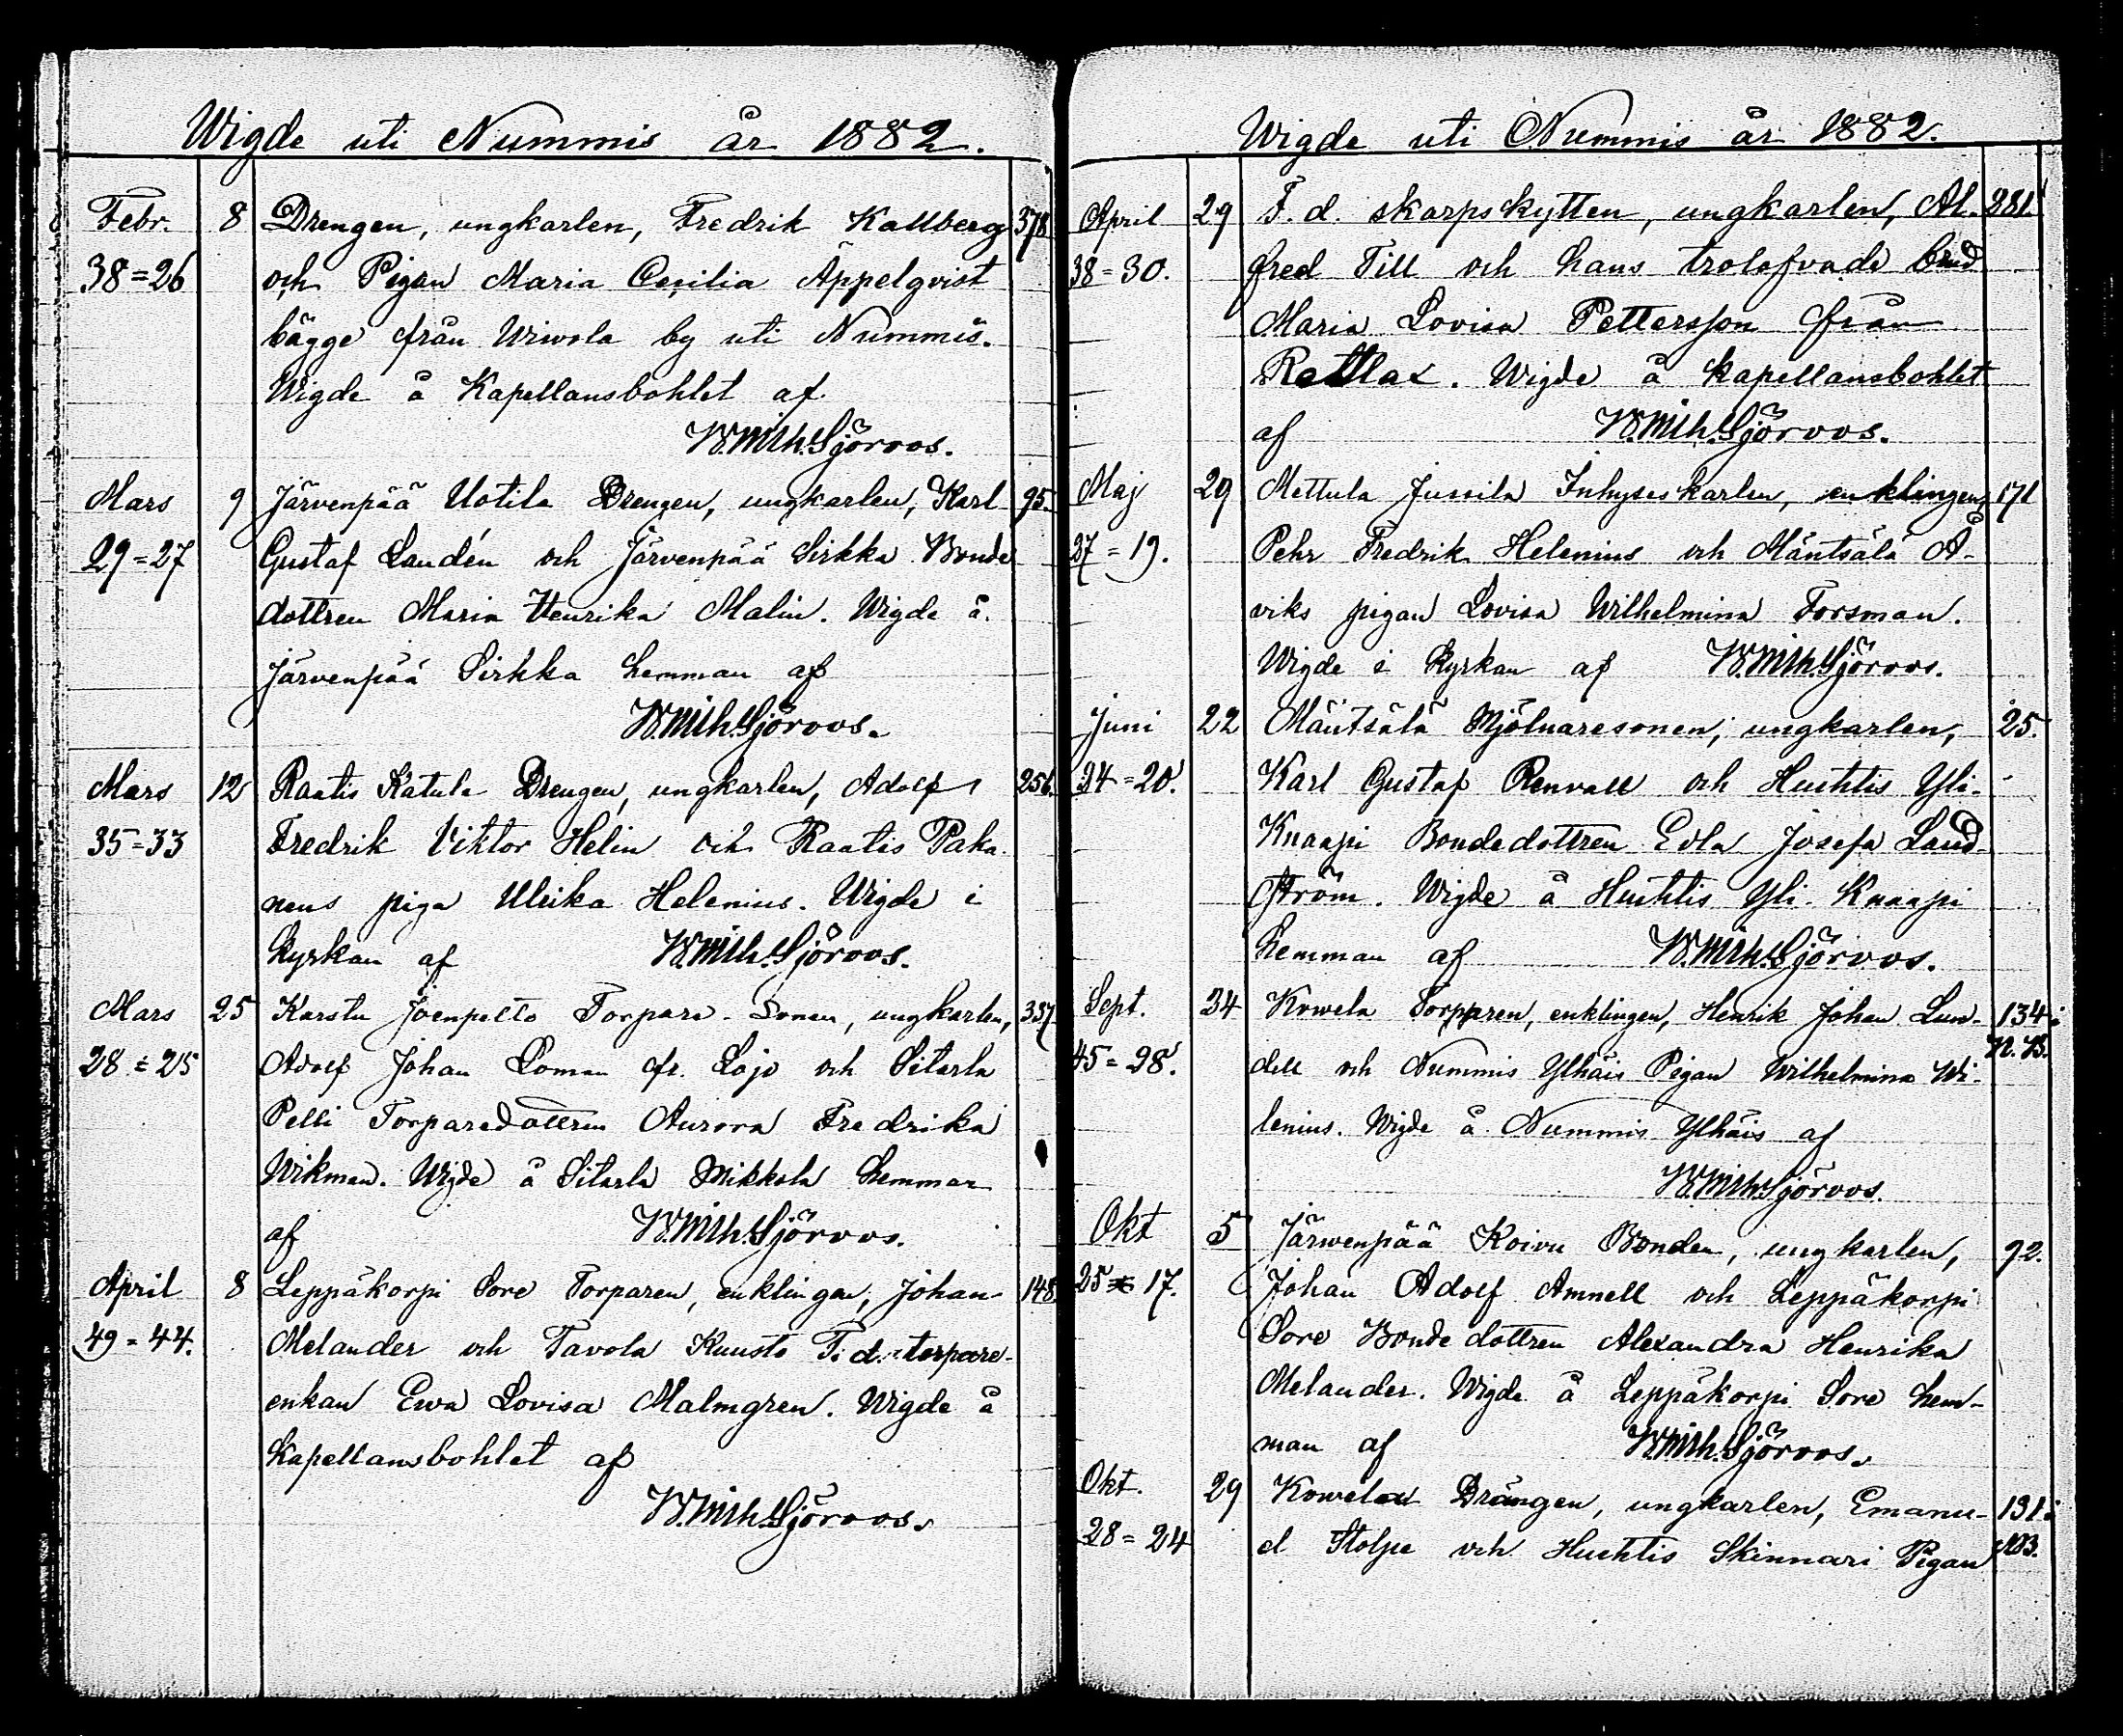 Wigde uti Nummis år 1882.
Febr. 8 Drengen, ungkarlen, Fredrik Kallberg 378
38=26 och Pigan Maria Cecilia Äppelqvist
bägge från Wiwola by uti Nummis.
Wigde å Kapellansbohlet af
W.Mih.Sjöroos.
Mars 9 Järvenpää Uotila Drengen, ungkarlen, Karl 95.
29=27 Gustaf Landén och Järvenpää Sirkka Bonde
dottren Maria Henrika Malin. Wigde å
Järvenpää Sirkka hemman af
W.Mih.Sjöroos.
Mars 12 Raatis Katula Drengen, ungkarlen, Adolf 256.
35=33 Fredrik Viktor Helin och Raatis Paka
nens piga Ulrika Helenius. Wigde i
kyrkan af W.Mih.Sjöroos.
Mars 25 Karstu Joenpelto Torpare-Sonen, ungkarlen, 337
28=25 Adolf Johan Loman fr. Lojo och Sitarla
Pelli Torparedottren Aurora Fredrika
Wikman. Wigde å Sitarla Mikkola hemman
af W.Mih.Sjöroos.
April 8 Leppäkorpi Sore Torparen, enklingen, Johan 148.
49=44. Melander och Tavola Kuusto F.d. torpare-
enkan Ewa Lovisa Malmgren. Wigde å
Kapellansbohlet af
W.Mih.Sjöroos.
Wigde uti Nummis år 1882.
April 29 F.d. skarpskytten, ungkarlen, Al- 281
38=30. fred Till och hans trolofvade brud
Maria Lovisa Pettersson från
Rettlax. Wigde å kapellansbohlet
af W.Mih.Sjöroos.
Maj 29 Mettula Jussila Inhyseskarlen, enklingen, 171
27=19. Pehr Fredrik Helenius och Mäntsälä Å-
viks pigan Lovisa Wilhelmina Forsman.
Wigde i Kyrkan af W.Mih.Sjöroos.
Juni 22 Mäntsälä Mjölnaresonen, ungkarlen, 25.
24=20. Karl Gustaf Renvall och Huhtis Yli-
Knaapi Bondedottren Edla Josefa Land-
ström. Wigde å Huhtis Yli-Knaapi
hemman af W.Mih.Sjöroos.
Sept. 24 Kowela Torpparen, enklingen, Henrik Johan Lun- 134
45=28. dell och Nummis Ylhäis Pigan Wilhelmina Wi- N.B.
lenius. Wigde å Nummis Ylhäis af
W.Mih.Sjöroos.
Okt 5 Järwenpää Koivu Bonden, ungkarlen, 92.
25=17. Johan Adolf Amnell och Leppäkorpi
Sore Bondedottren Alexandra Henrika
Melander. Wigde å Leppäkorpi Sore hem-
man af W.Mih.Sjöroos.
Okt. 29 Kowelan Drängen, ungkarlen, Emanu- 131.
28=24 el Stolpe och Huhtis Skinnari Pigan NB.